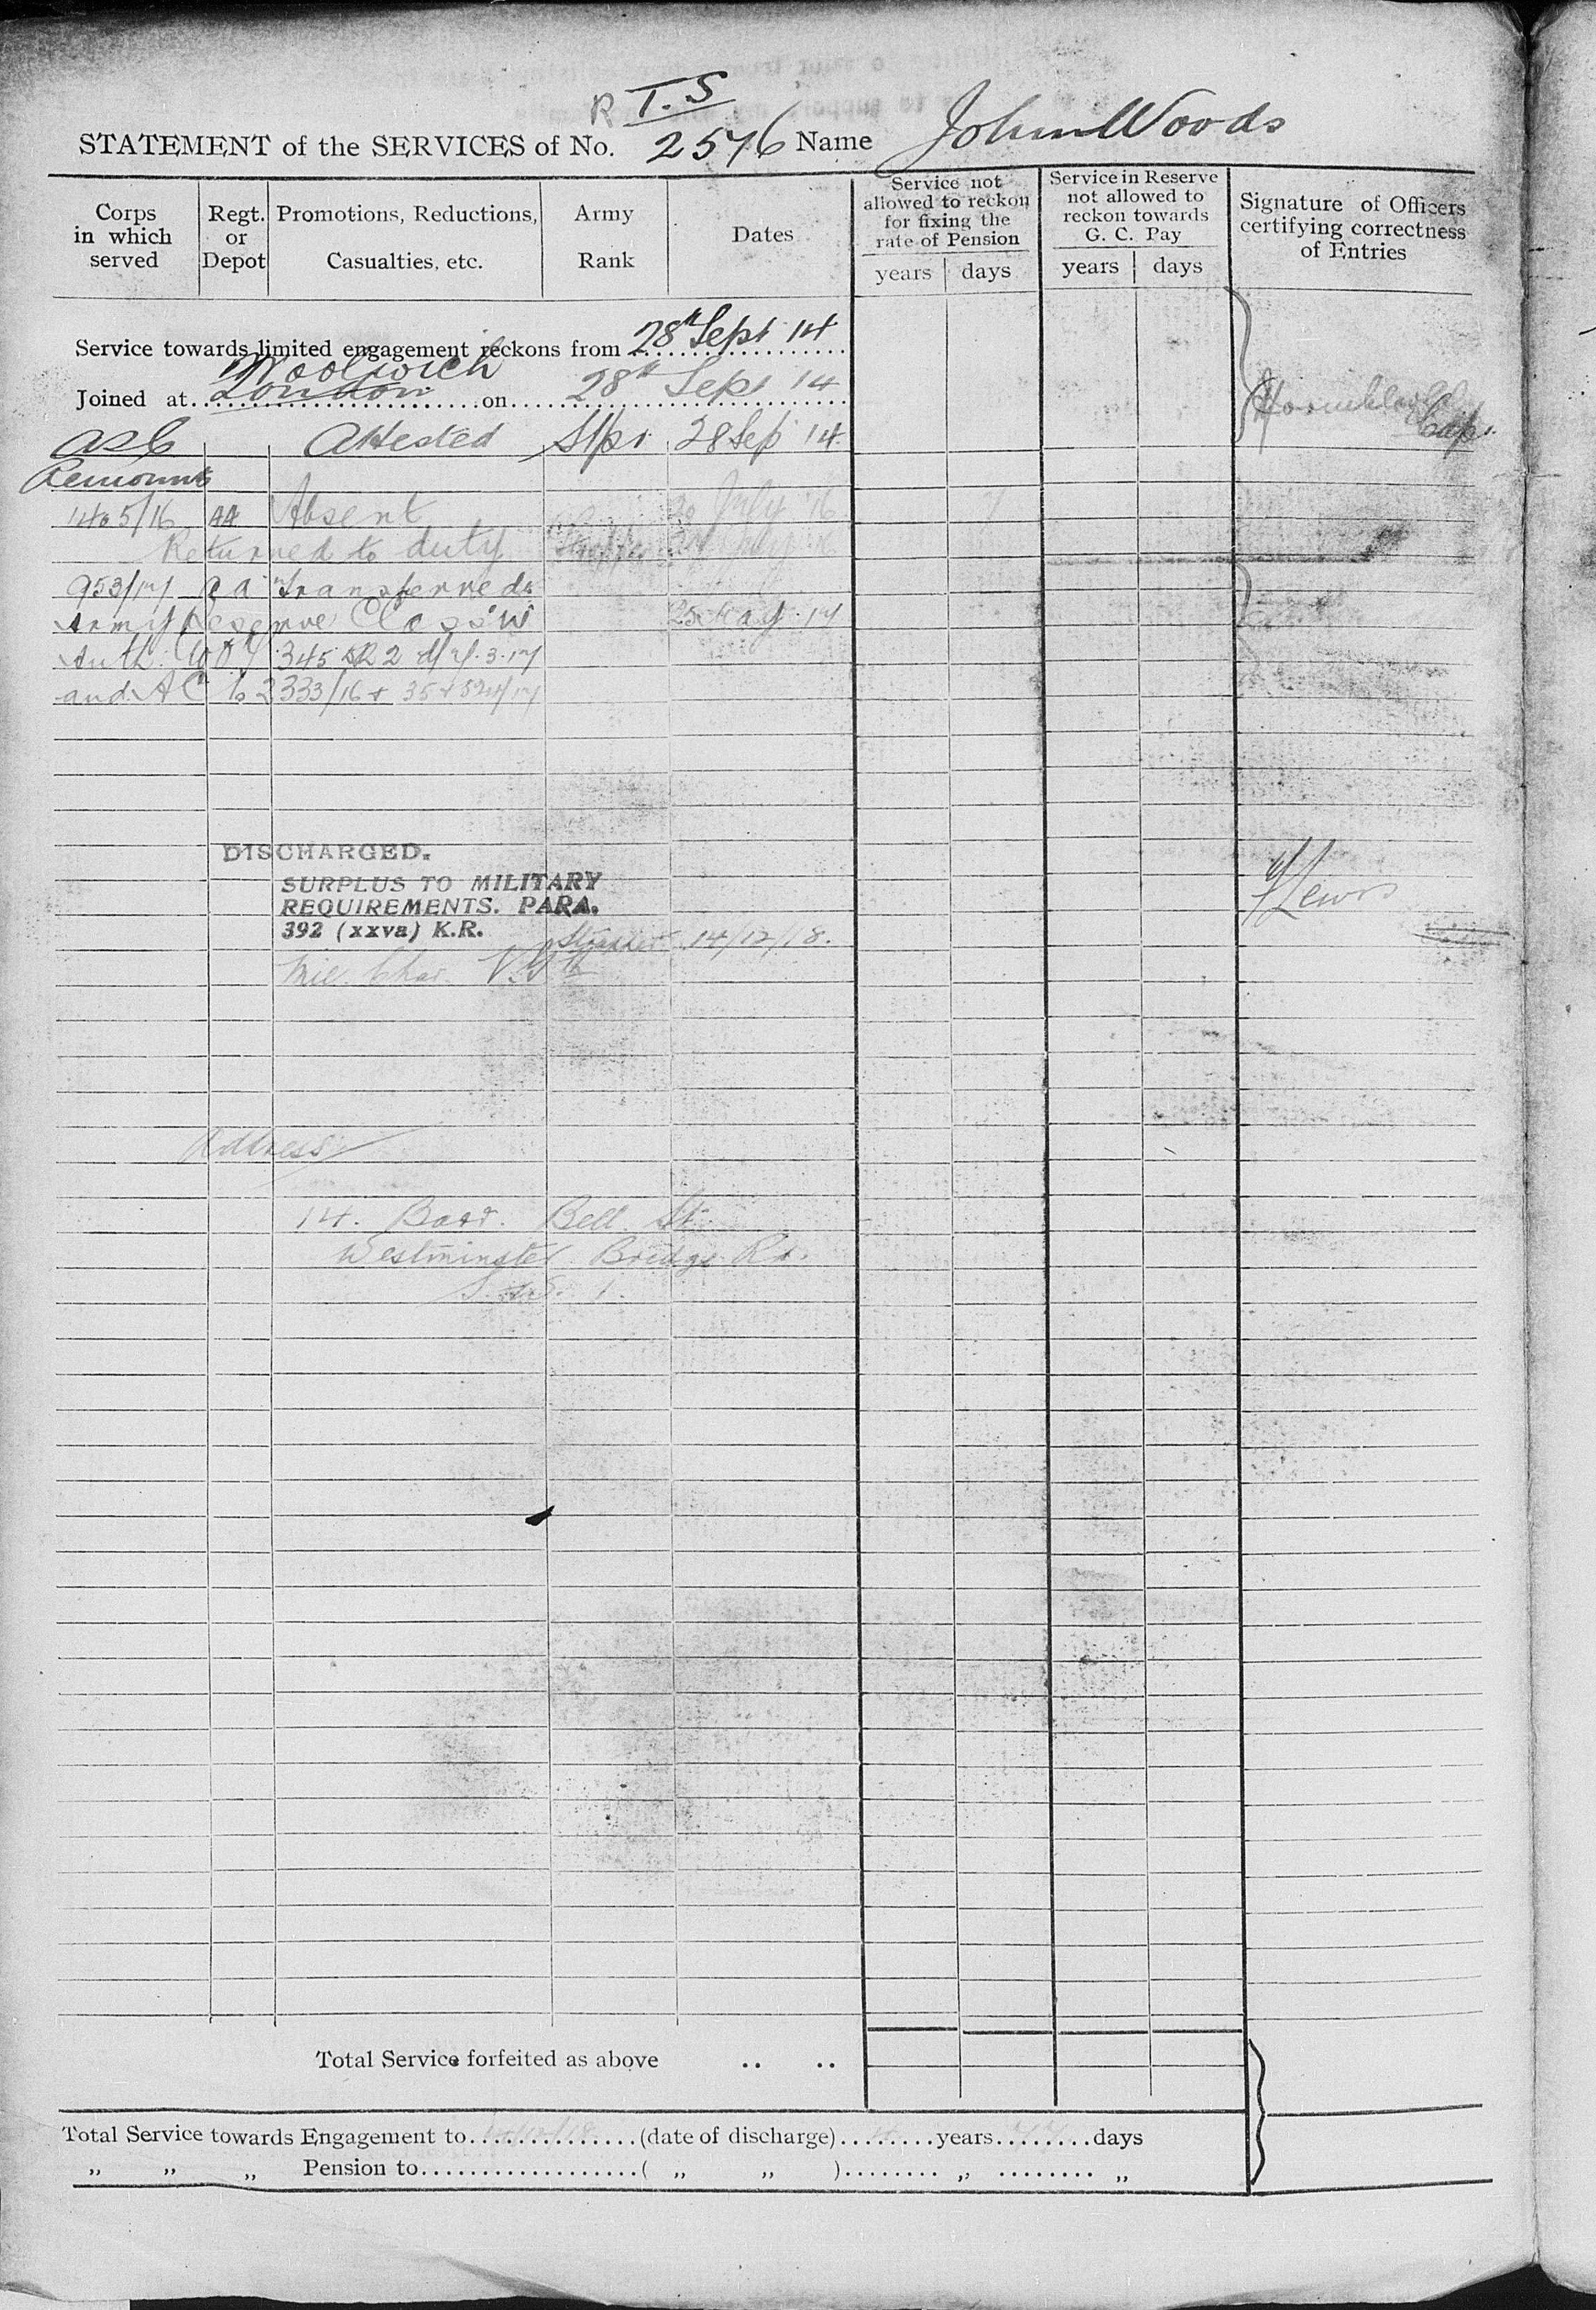 R T.S
STATEMENT of the SERVICES of No. 2576 Name John Woods
Corps in which served
Regt. or Depot
Promotions, Reductions, Casualties, etc.
Army Rank
Dates
Service not allowed to reckon for fixing the rate of Pension
years days
Service in Reserve not allowed to reckon towards G. C. Pay
years days
Signature of Officers certifying correctness of Entries
Service towards limited engagement reckons from 28th Sept 14
Woolwich
Joined at London on 28th Sept 14
Capt.
ASC Attested Stpr 28 Sep 14
Remounts
1405/16 AA Absent 20 July 16 4
Returned to duty July 16
953/17 Transferred to
Army Reserve Class W 25 May 17
Auth. 345 3.17
and 2333/16 + 35 +
DISCHARGED.
SURPLUS TO MILITARY
REQUIREMENTS. PARA.
392 (xxva) K.R.
14/12/18.
Lewis
Mil. Char. V.G.
Address
14. Bell St.
Westminster Bridge Rd.
S. 1.
Total Service forfeited as above .. ..
Total Service towards Engagement to (date of discharge) years days
„ „ „ Pension to ( „ „ ) „ „